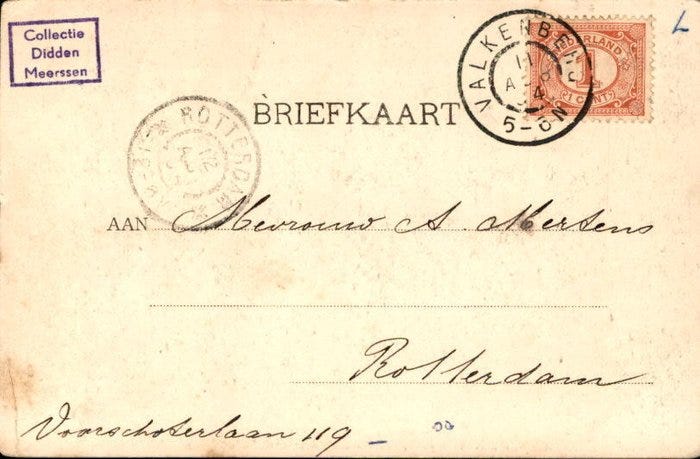 Collectie
Didden
Meerssen
L
NEDERLAND
1
1 CENT
VALKENBERG
11
5-6N
BRIEFKAART
ROTTERDAM
12
AAN Mevrouw A. Mertens
Rotterdam
Voorschoterlaan 119